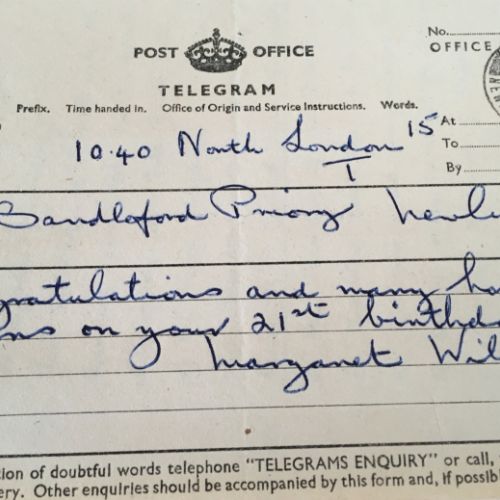 No.
POST OFFICE
OFFICE
TELEGRAM
Prefix. Time handed in. Office of Origin and Service Instructions. Words.
10.40 North London 15
T
At
To
By
Sandleford Priory Newb
gratulations and many ha
ns on your 21st birthda
Margaret Wil
tion of doubtful words telephone "TELEGRAMS ENQUIRY" or call,
ery. Other enquiries should be accompanied by this form and, if possib